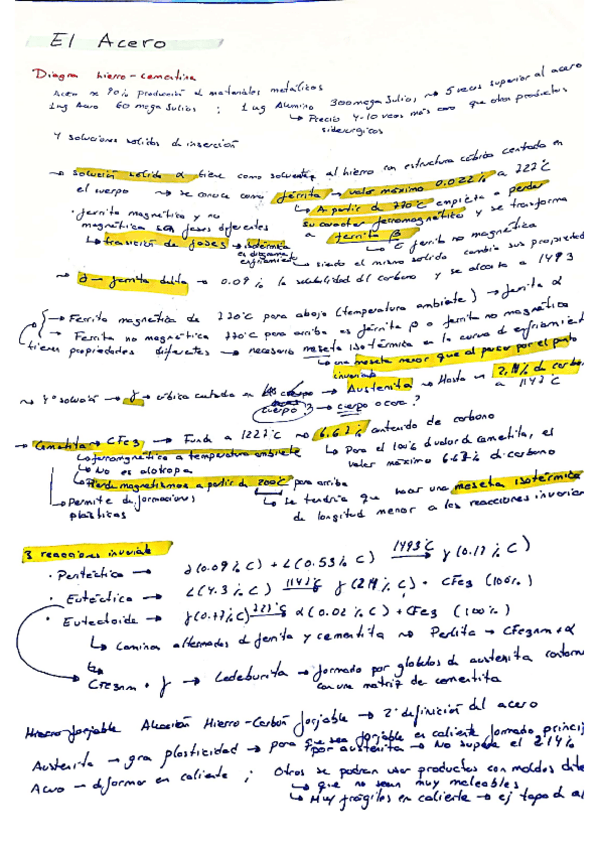 El Acero
Diagra hierro-cementina
Acero es 90% producción de materiales metálicos
1 kg Acero 60 mega Julios ; 1 kg Aluminio 300 mega Julios, ~> 5 veces superior al acero
↳ Precio 4-10 veces más caro que otros productos
siderúrgicos
4 soluciones solidas de inserción
→ solución solida α tiene como solvente al hierro con estructura cúbica centrada en
el cuerpo → se conoce como ferrita → valor máximo 0.022% a 727°C
↳ A partir de 770°C empieza a perder
su caracter ferromagnético y se transforma
a ferrita β
· ferrita magnética y no
magnética son fases diferentes
↳ transición de fases → isotérmica
es diagrama
enfriamiento
↳ ferrita no magnética
↳ siendo el mismo solido cambia sus propiedad
→ δ - ferrita delta → 0.09% la solubilidad del carbono y se alcanza a 1493
→ Ferrita magnética de 770°C para abajo (temperatura ambiente) → ferrita α
→ Ferrita no magnética 770°C para arriba es ferrita β o ferrita no magnética
tienen propiedades diferentes → necesario meseta isotérmica en la curva de enfriamient
↳ una meseta menor que al pasar por el punto
invariable
→ 4ª solución → γ → cúbica centrada en cuerpo → Austenita → Hasta un 2,11% de carbo
a 1148°C
cuerpo? → cuerpo o cara?
→ Cementita → CFe3 → Funde a 1227°C → 6.67% contenido de carbono
↳ ferromagnética a temperatura ambiente
↳ Para el 100% de valor de cementita, es
valor máximo 6.67% di carbono
↳ No es alotropa
↳ Pierde magnetismos a partir de 200°C para arriba
↳ Permite deformaciones
plásticas
↳ se tendría que usar una meseta isotérmica
de longitud menor a las reacciones invarian
3 reacciones invariante
· Peritéctica → δ(0.09% C) + L(0.53% C) 1493°C → γ(0.17% C)
· Eutéctica → L(4.3% C) 1148°C → γ(2.11% C) + CFe3 (100%)
· Eutectoide → γ(0.77% C) 727°C → α(0.02% C) + CFe3 (100%)
↳ Laminas alternadas de ferrita y cementita ~> Perlita → CFe3 + α
CFe3 + γ → Ledeburita → formado por globulos de austenita
con una matriz de cementita
Hierro forjable Aleación Hierro-Carbón forjable → 2ª definición del acero
↳ que sea forjable en caliente formado princip
Austenita → gra plasticidad → para por austenita → No supera el 2.14%
Acero → deformar en caliente ; Otros se podran usar productos con moldes
↳ que no sean muy maleables
↳ Muy frágiles en caliente → ej tapa d